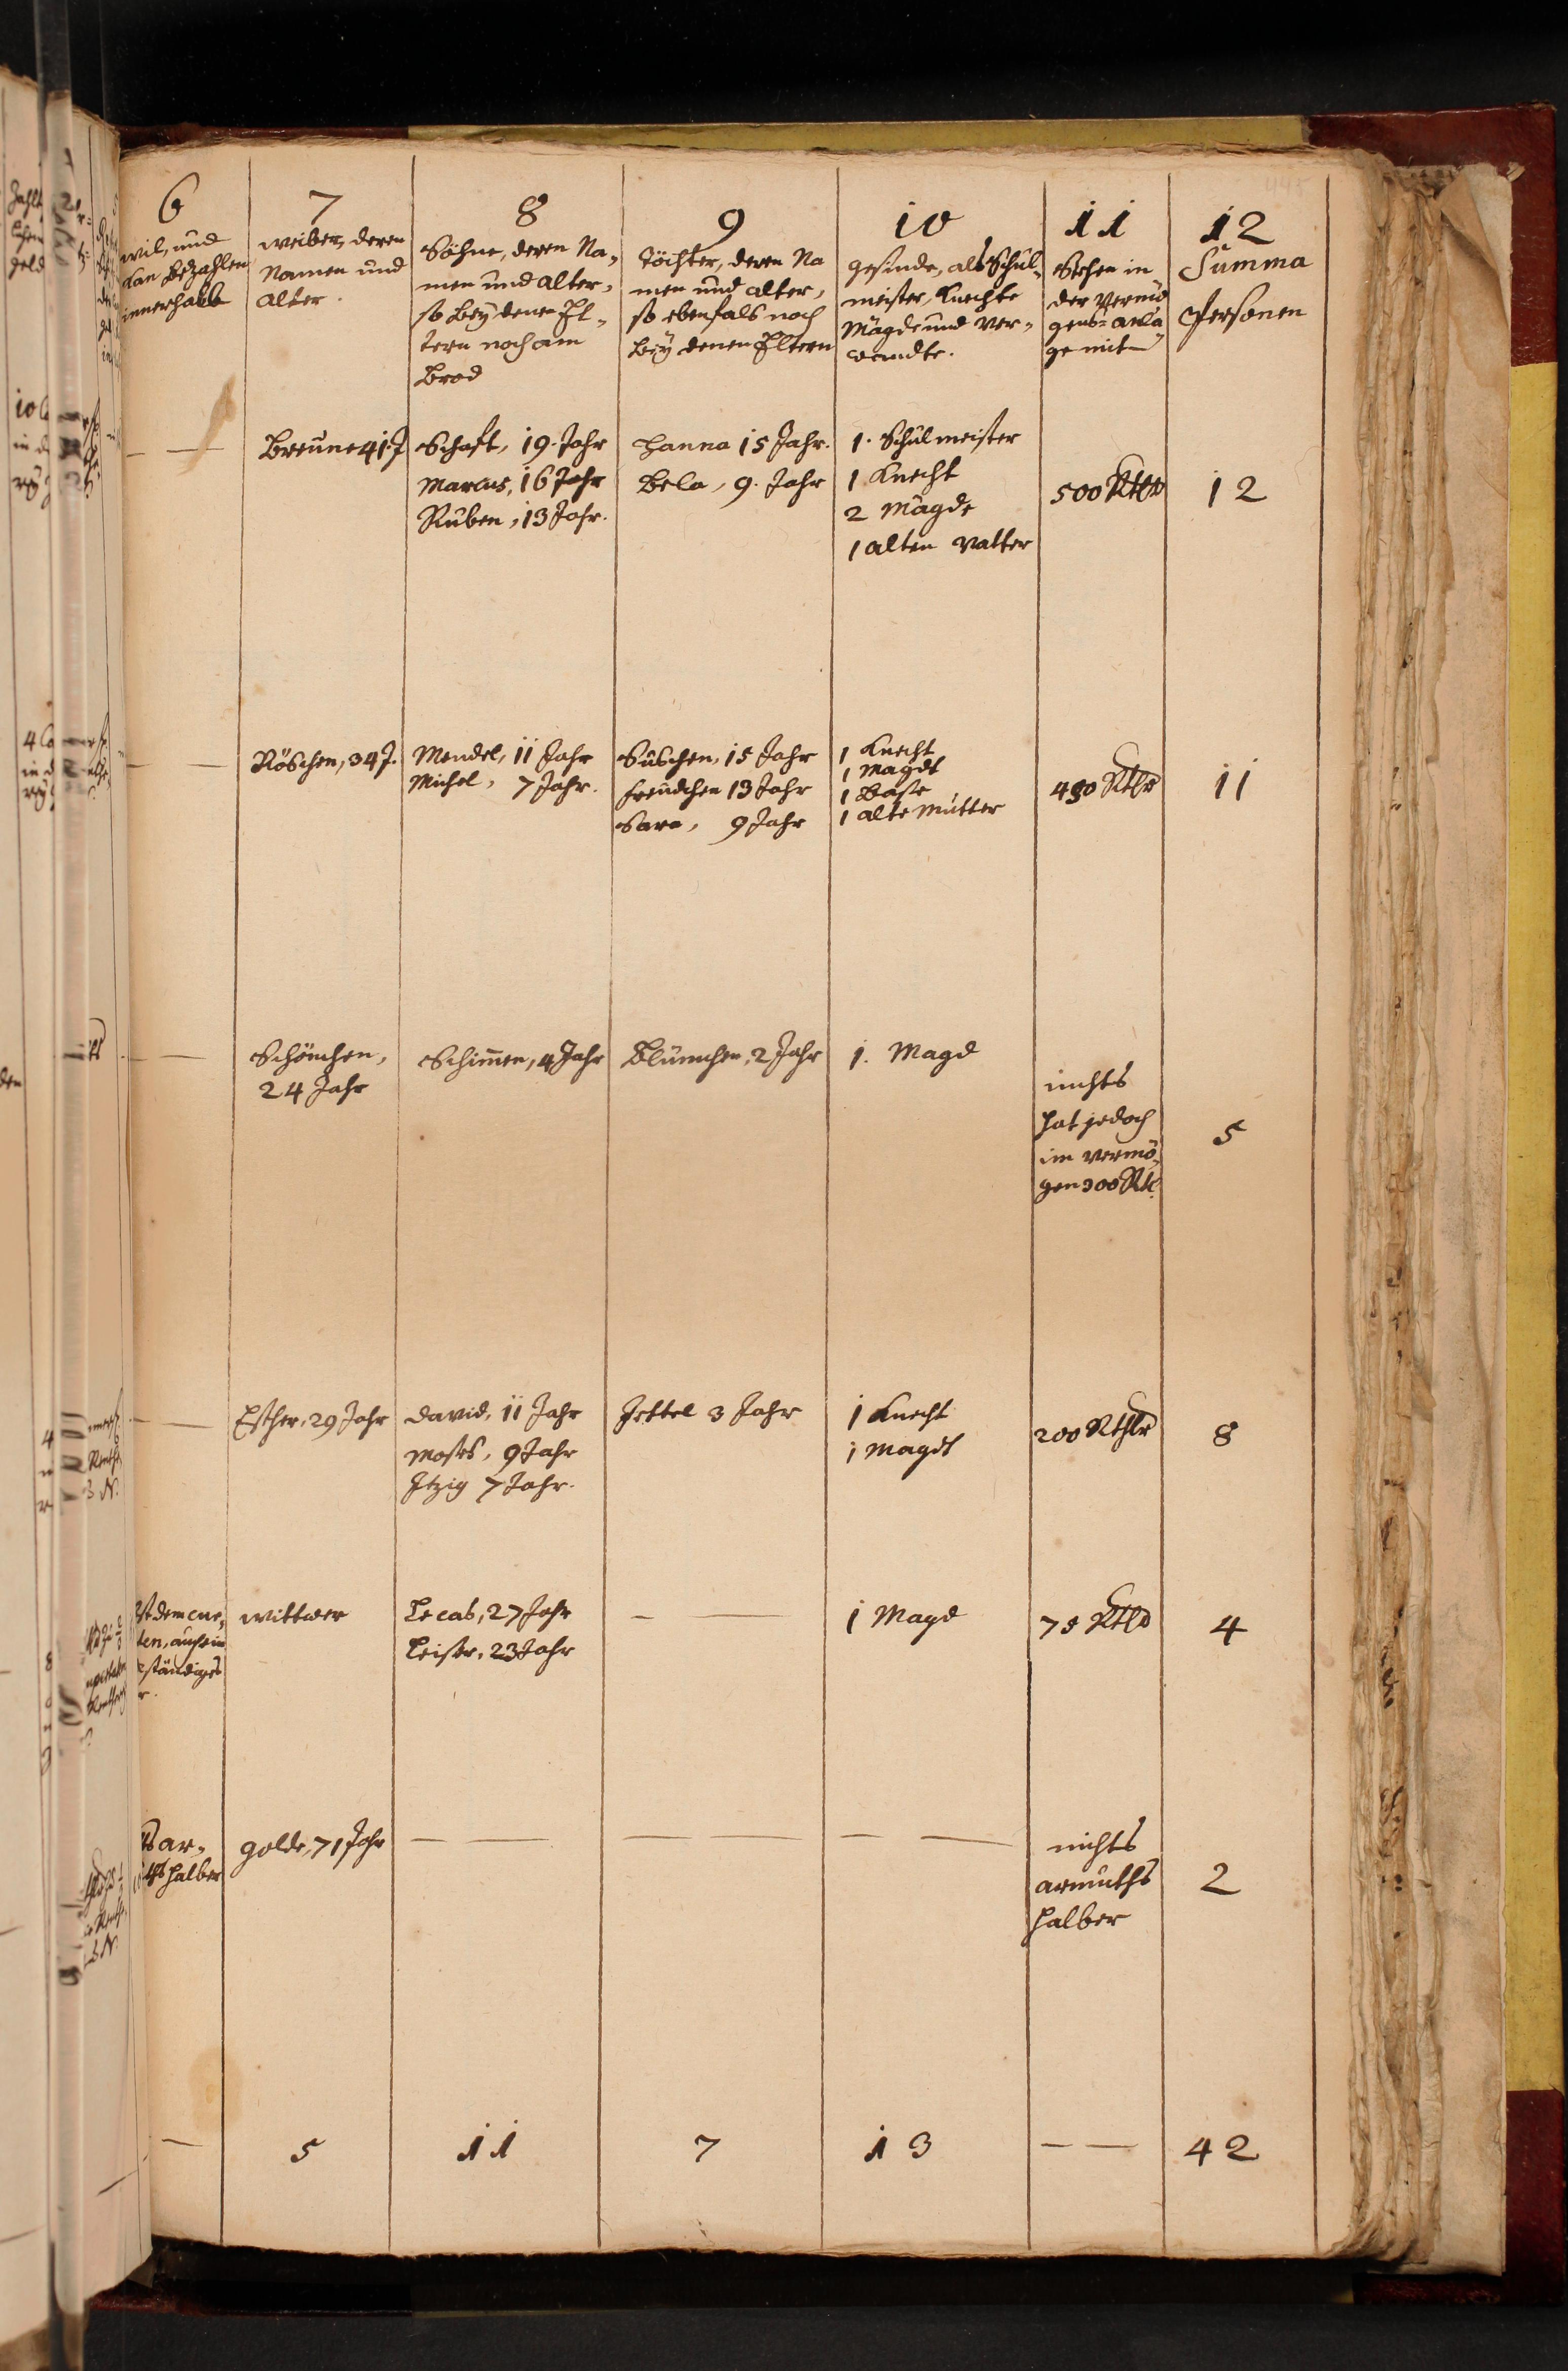 6
wil, und
kan bezahlen
innerhalb
7
weiber, deren
Namen und
alter.
8
Söhne, deren Na-
men und alter,
so bey denen El-
tern noch am
brod
9
Töchter, deren Na
men und alter,
so ebenfals noch
bey denen Eltern
10
gesinde, als Schul-
meister, Knechte
Mägde und ver-
wandte.
11
Stehen in
der vermö
gens-anla
ge mit
12
Summa
Personen
Breune 41 J
Schaft, 19. Jahr
Marcus, 16 Jahr
Ruben, 13 Jahr.
Hanna 15 Jahr.
Bela, 9. Jahr
1. Schulmeister
1 Knecht
2 Mägde
1 alten vatter
500 Rthlr
12
Röschen, 34 J.
Mendel, 11 Jahr
Michel, 7 Jahr.
Süschen, 15 Jahr
freudchen 13 Jahr
Sara, 9 Jahr
1 Knecht
1 Magdt
1 Base
1 alte Mutter
450 Rthlr
11
Schönchen,
24 Jahr
Schimen, 4 Jahr
Blümchen, 2 Jahr
1. Magd
nichts
hat jedoch
im vermö-
gen 300 Rtl.
5
Esther, 29 Jahr
david, 11 Jahr
Moses, 9 Jahr
Itzig 7 Jahr.
Jettel 3 Jahr
1 Knecht
1 Magdt
200 Rthlr
8
wittwer
Lecas, 27 Jahr
Leiser, 23 Jahr
1 Magd
75 Rthlr
4
halber
golde, 71 Jahr
nichts
armuths
halber
2
5
11
7
13
42